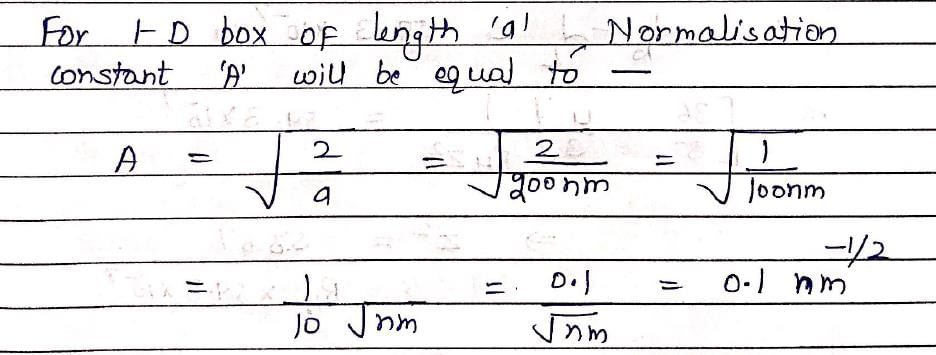 For 1-D box of length 'a', Normalisation
constant 'A' will be equal to —
A = √(2/a) = √(2/200nm) = √(1/100nm)
= 1/(10 √nm) = 0.1/√nm = 0.1 nm^(-1/2)